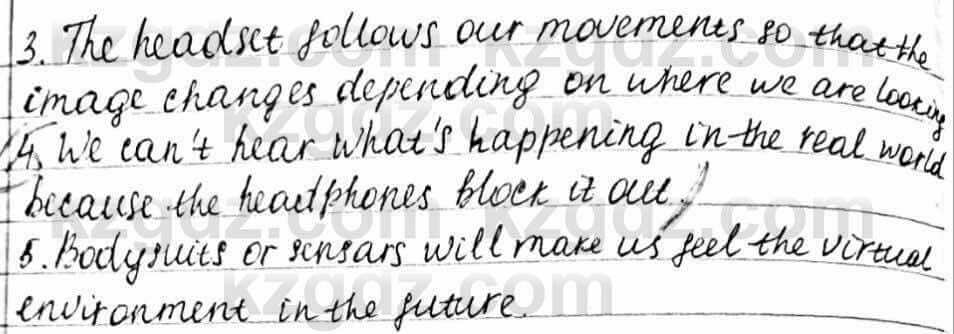 3. The headset follows our movements so that the
image changes depending on where we are looking
4. We can't hear what's happening in the real world
because the headphones block it out.
5. Bodysuits or sensars will make us feel the virtual
environment in the future.